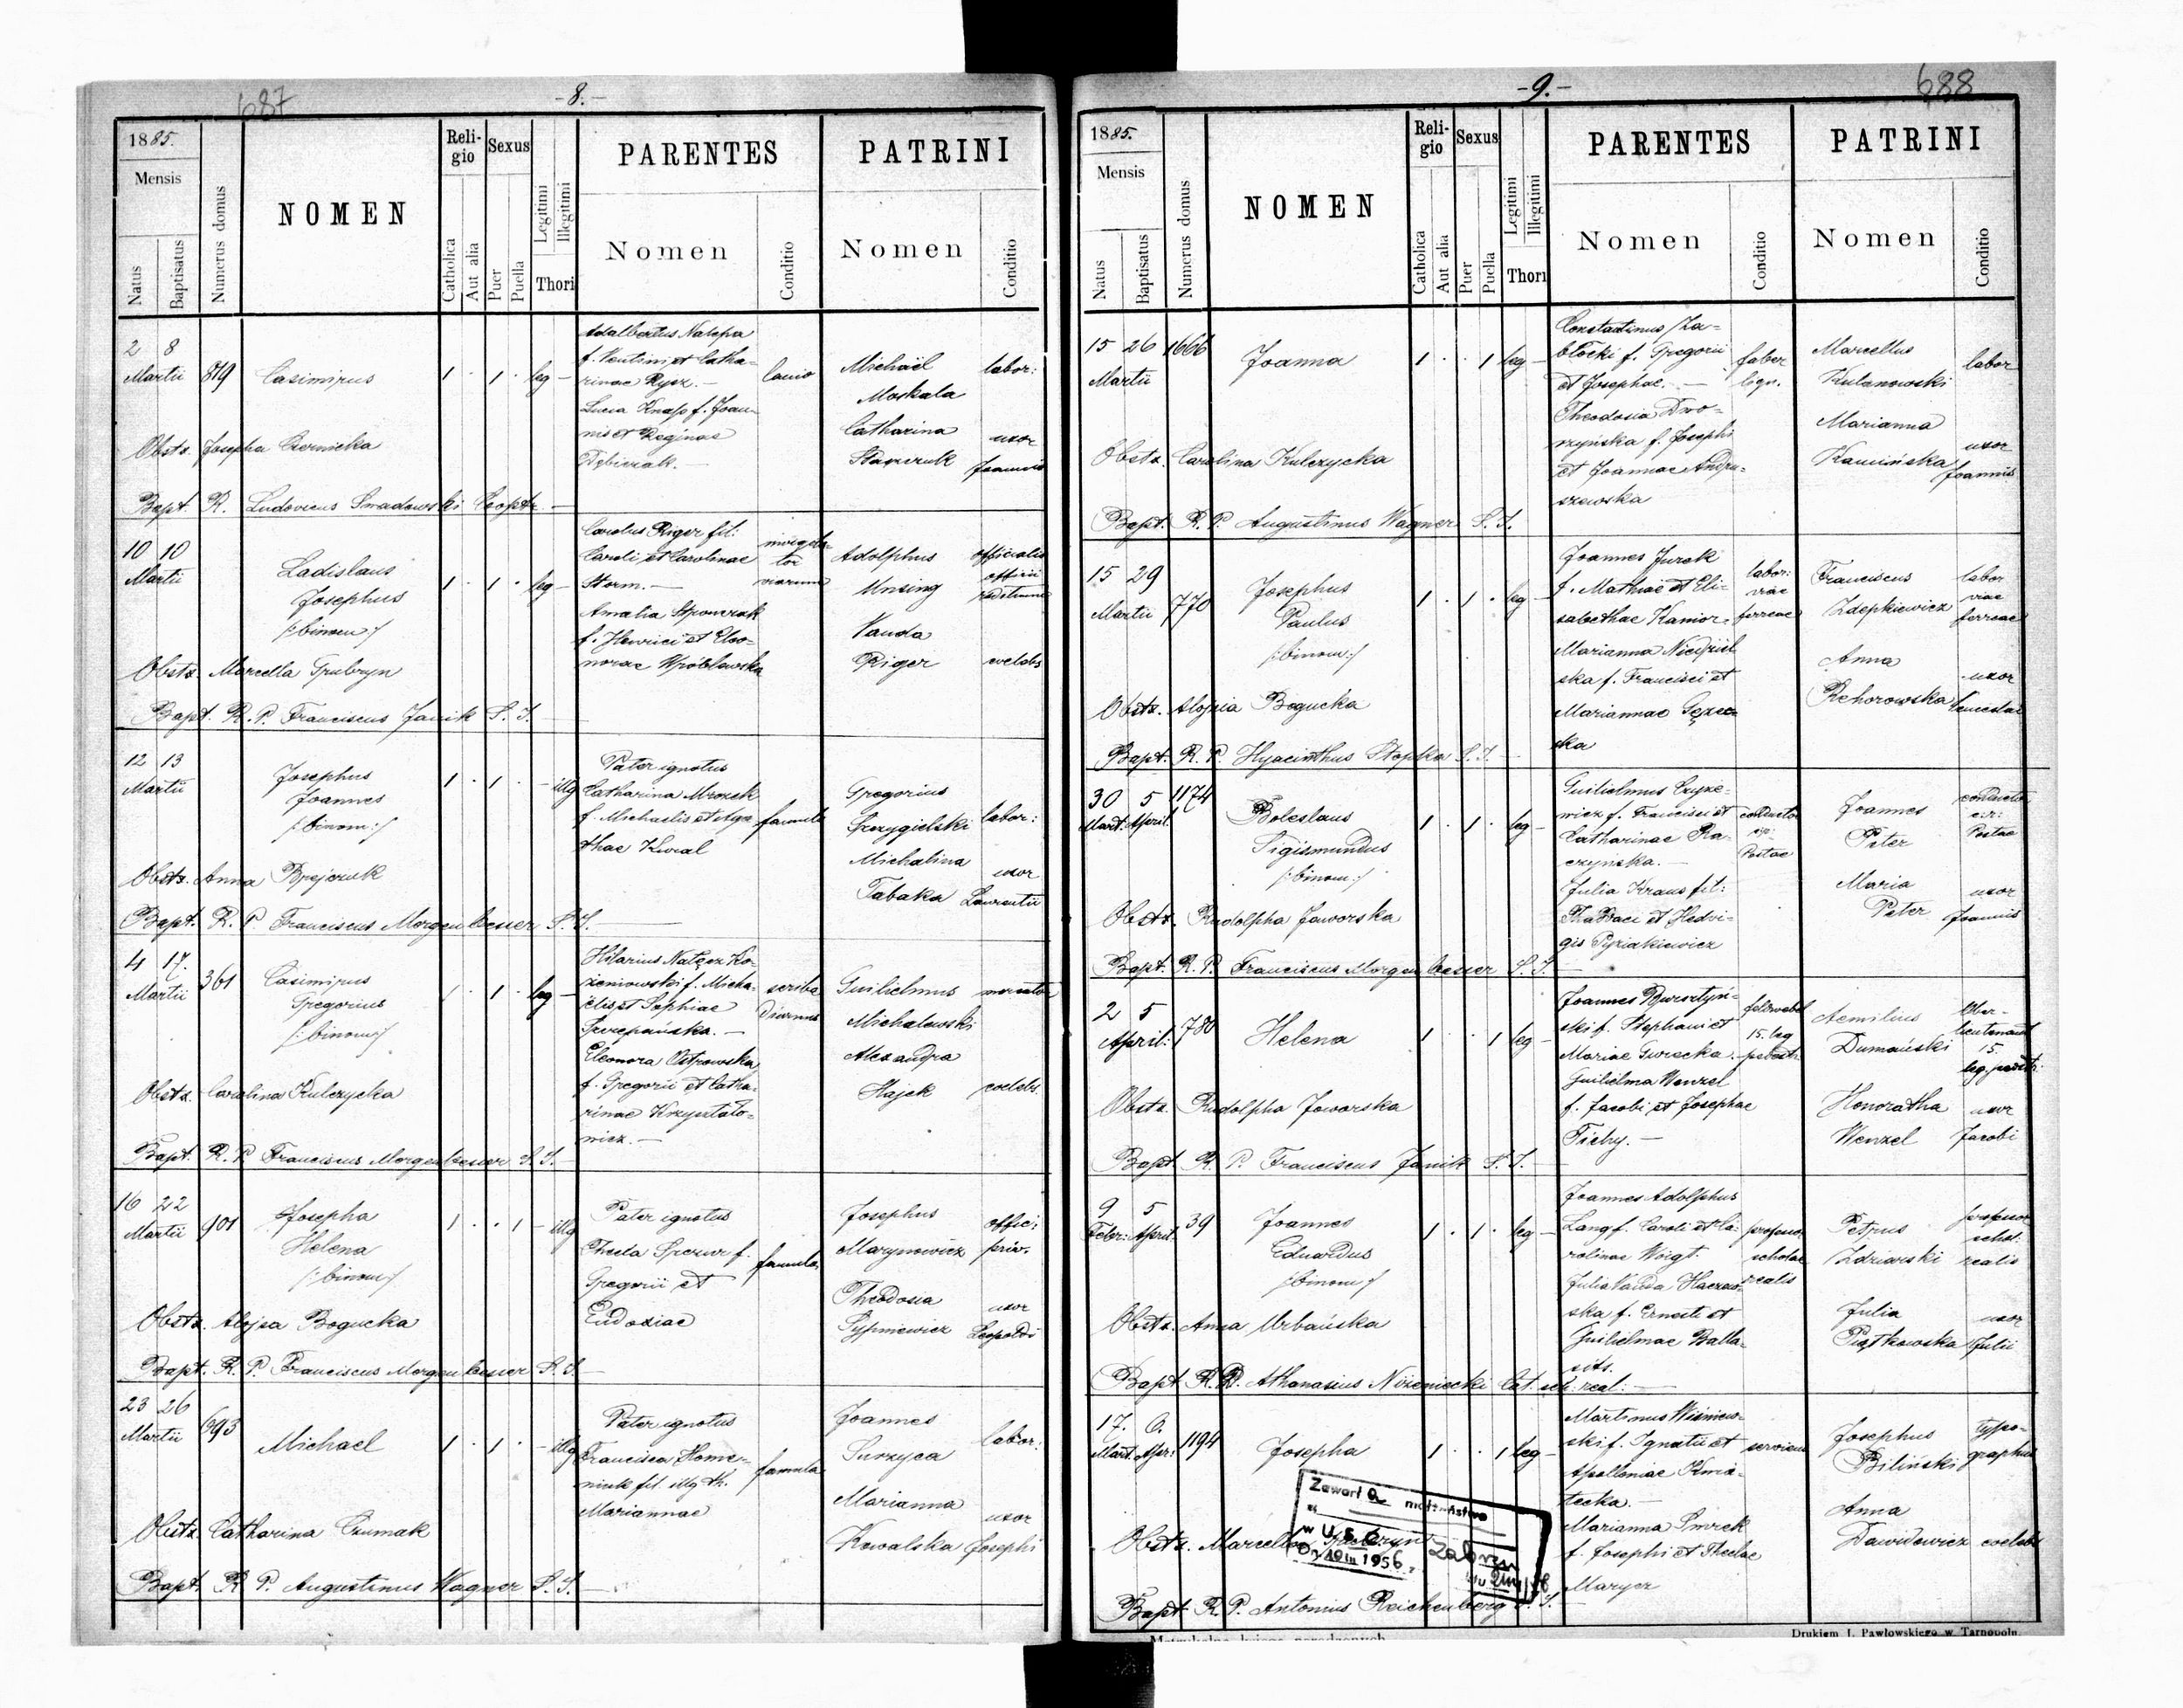 687
-8.-
1885.
Mensis
Natus
Baptisatus
Numerus domus
NOMEN
Religio
Catholica
Aut alia
Sexus
Puer
Puella
Legitimi
Illegitimi
Thori
PARENTES
Nomen
Conditio
PATRINI
Nomen
Conditio
2 8
Martii
819
Casimirus
1 . 1 . leg -
Adalbertus Nalepa
f. et Catha-
rinae Rysz. -
Lucia Knap f. Joan-
nis et Reginae
lanio
Michaël
Moskala
labor:
Catharina
uxor
Joannis
Obstx. Josepha Czernicka
Bapt. R. Ludovicus Cooptr. -
10 10
Martii
Ladislaus
Josephus
/:binom:/
1 . 1 . leg -
Carolus Riger fil:
Caroli et Carolinae
Storm. -
Amalia
f. Henrici et Eleo-
norae Wróblewska
viarum
Adolphus
Unsing
officialis
officii
Vanda
Riger
coelebs
Obstx. Marcella Grubryn
Bapt. R. P. Franciscus Janik S. J. -
12 13
Martii
Josephus
Joannes
/:binom:/
1 . 1 . - illg
Pater ignotus
Catharina Mrozek
f. Michaelis et Aga-
thae Kural
famula
Gregorius
Szczygielski
labor:
Michalina
Tabaka
uxor
Laurentii
Obstx. Anna
Bapt. R. P. Franciscus Morgenbesser S. J. -
4 17.
Martii
361
Casimirus
Gregorius
/:binom:/
1 . 1 . leg -
Hilarius Nałęcz Ko-
rzeniowski f. Micha-
ëlis et Sophiae
Szczepańska. -
Eleonora Ostrowska
f. Gregorii et Catha-
rinae Krzysztafo-
wicz. -
scriba
diurnus
Guilielmus
Michalewski
mercator
Alexandra
Hajek
coelebs.
Obstx. Carolina Kulczycka
Bapt. R. P. Franciscus Morgenbesser S. J. -
16 22
Martii
901
Josepha
Helena
/:binom:/
1 . . 1 - illg
Pater ignotus
Thecla f.
Gregorii et
Eudoxiae
famula
Josephus
Marynowicz
offici
priv.
Theodosia
Sypniewicz
uxor
Leopoldi
Obstx. Alojsa Bogucka
Bapt. R. P. Franciscus Morgenbesser S. J. -
23 26
Martii
693
Michael
1 . 1 . - illg
Pater ignotus
Francisca Home-
niuk fil. illg th.
Mariannae
famula
Joannes
Surzyca
labor:
Marianna
Kowalska
uxor
Josephi
Obstx. Catharina Czumak
Bapt. R. P. Augustinus Wagner S. J. -
688
-9.-
1885.
Mensis
Natus
Baptisatus
Numerus domus
NOMEN
Religio
Catholica
Aut alia
Sexus
Puer
Puella
Legitimi
Illegitimi
Thori
PARENTES
Nomen
Conditio
PATRINI
Nomen
Conditio
15 26
Martii
1666
Joanna
1 . . 1 leg -
Constantinus Za-
błocki f. Gregorii
et Josephae. -
Theodosia Dwo-
rzyńska f. Josephi
et Joannae Andru-
szewska
faber
lign.
Marcellus
Kulanowski
labor
Marianna
Kamińska
uxor
Joannis
Obstx. Carolina Kulczycka
Bapt. R. P. Augustinus Wagner S. J.
15 29
Martii
770
Josephus
Paulus
/:binom:/
1 . 1 . leg -
Joannes Jurek
f. Mathiae et Eli-
sabethae Kanior.
Marianna
ska f. Francisci et
Mariannae
ska
labor:
viae
ferreae
Franciscus
Zdepkiewicz
labor
viae
ferreae
Anna
Rehorowska
uxor
Venceslai
Obstx. Alojsia Bogucka
Bapt. R. P. Hyacinthus Stopka S. J. -
30 5
Mart. April.
1174
Boleslaus
Sigismundus
/:binom:/
1 . 1 . leg -
Guilielmus Czyże-
wicz f. Francisci et
Catharinae Ra-
czynska. -
Julia Kraus fil:
Thaddaei et Hedvi-
gis Pyziakiewicz
conductor
Postae
Joannes
Peter
conductor
Postae
Maria
Peter
uxor
Joannis
Obstx. Rudolpha Jaworska
Bapt. R. P. Franciscus Morgenbesser S. J. -
2 5
April:
780
Helena
1 . . 1 leg -
Joannes Bursztyń-
ski f. Stephani et
Mariae Gurecka. -
Guilielma Wenzel
f. Jacobi et Josephae
Tichy. -
feldwebel
15. leg
pedestr.
Aemilius
Dumański
Ober-
lieutenant
15.
leg. pedestr.
Honoratha
Wenzel
uxor
Jacobi
Obstx. Rudolpha Jaworska
Bapt. R. P. Franciscus Janik S. J. -
9 5
Febr: April.
39
Joannes
Eduardus
/:binom:/
1 . 1 . leg -
Joannes Adolphus
Lang f. Caroli et Ca-
rolinae Woigt.
Julia Vanda
ska f. Ernesti et
Guilielmae Balla-
sits.
professor
scholae
realis
Petrus
Zdziarski
professor
schol:
realis
Julia
Piątkowska
uxor
Julii
Obstx. Anna Urbańska
Bapt. R. D. Athanasius Nizeniecki Cat. sch: real: -
17. 6.
Mart. Apr:
1194
Josepha
1 . . 1 leg -
Martinus Wiśniew-
ski f. Ignatii et
Apolloniae Kwia-
tecka. -
Marianna Smrek
f. Josephi et Theclae
Maryer
serviens
Josephus
Biliński
typo-
graphus
Anna
Dawidowicz
coelebs
Zawarł a małżeństwo
w U S C Zabrzu
1956
Obstx. Marcella
Bapt. R. P. Antonius Reichenberg S. J. -
Drukiem J. Pawłowskiego w Tarnopolu.